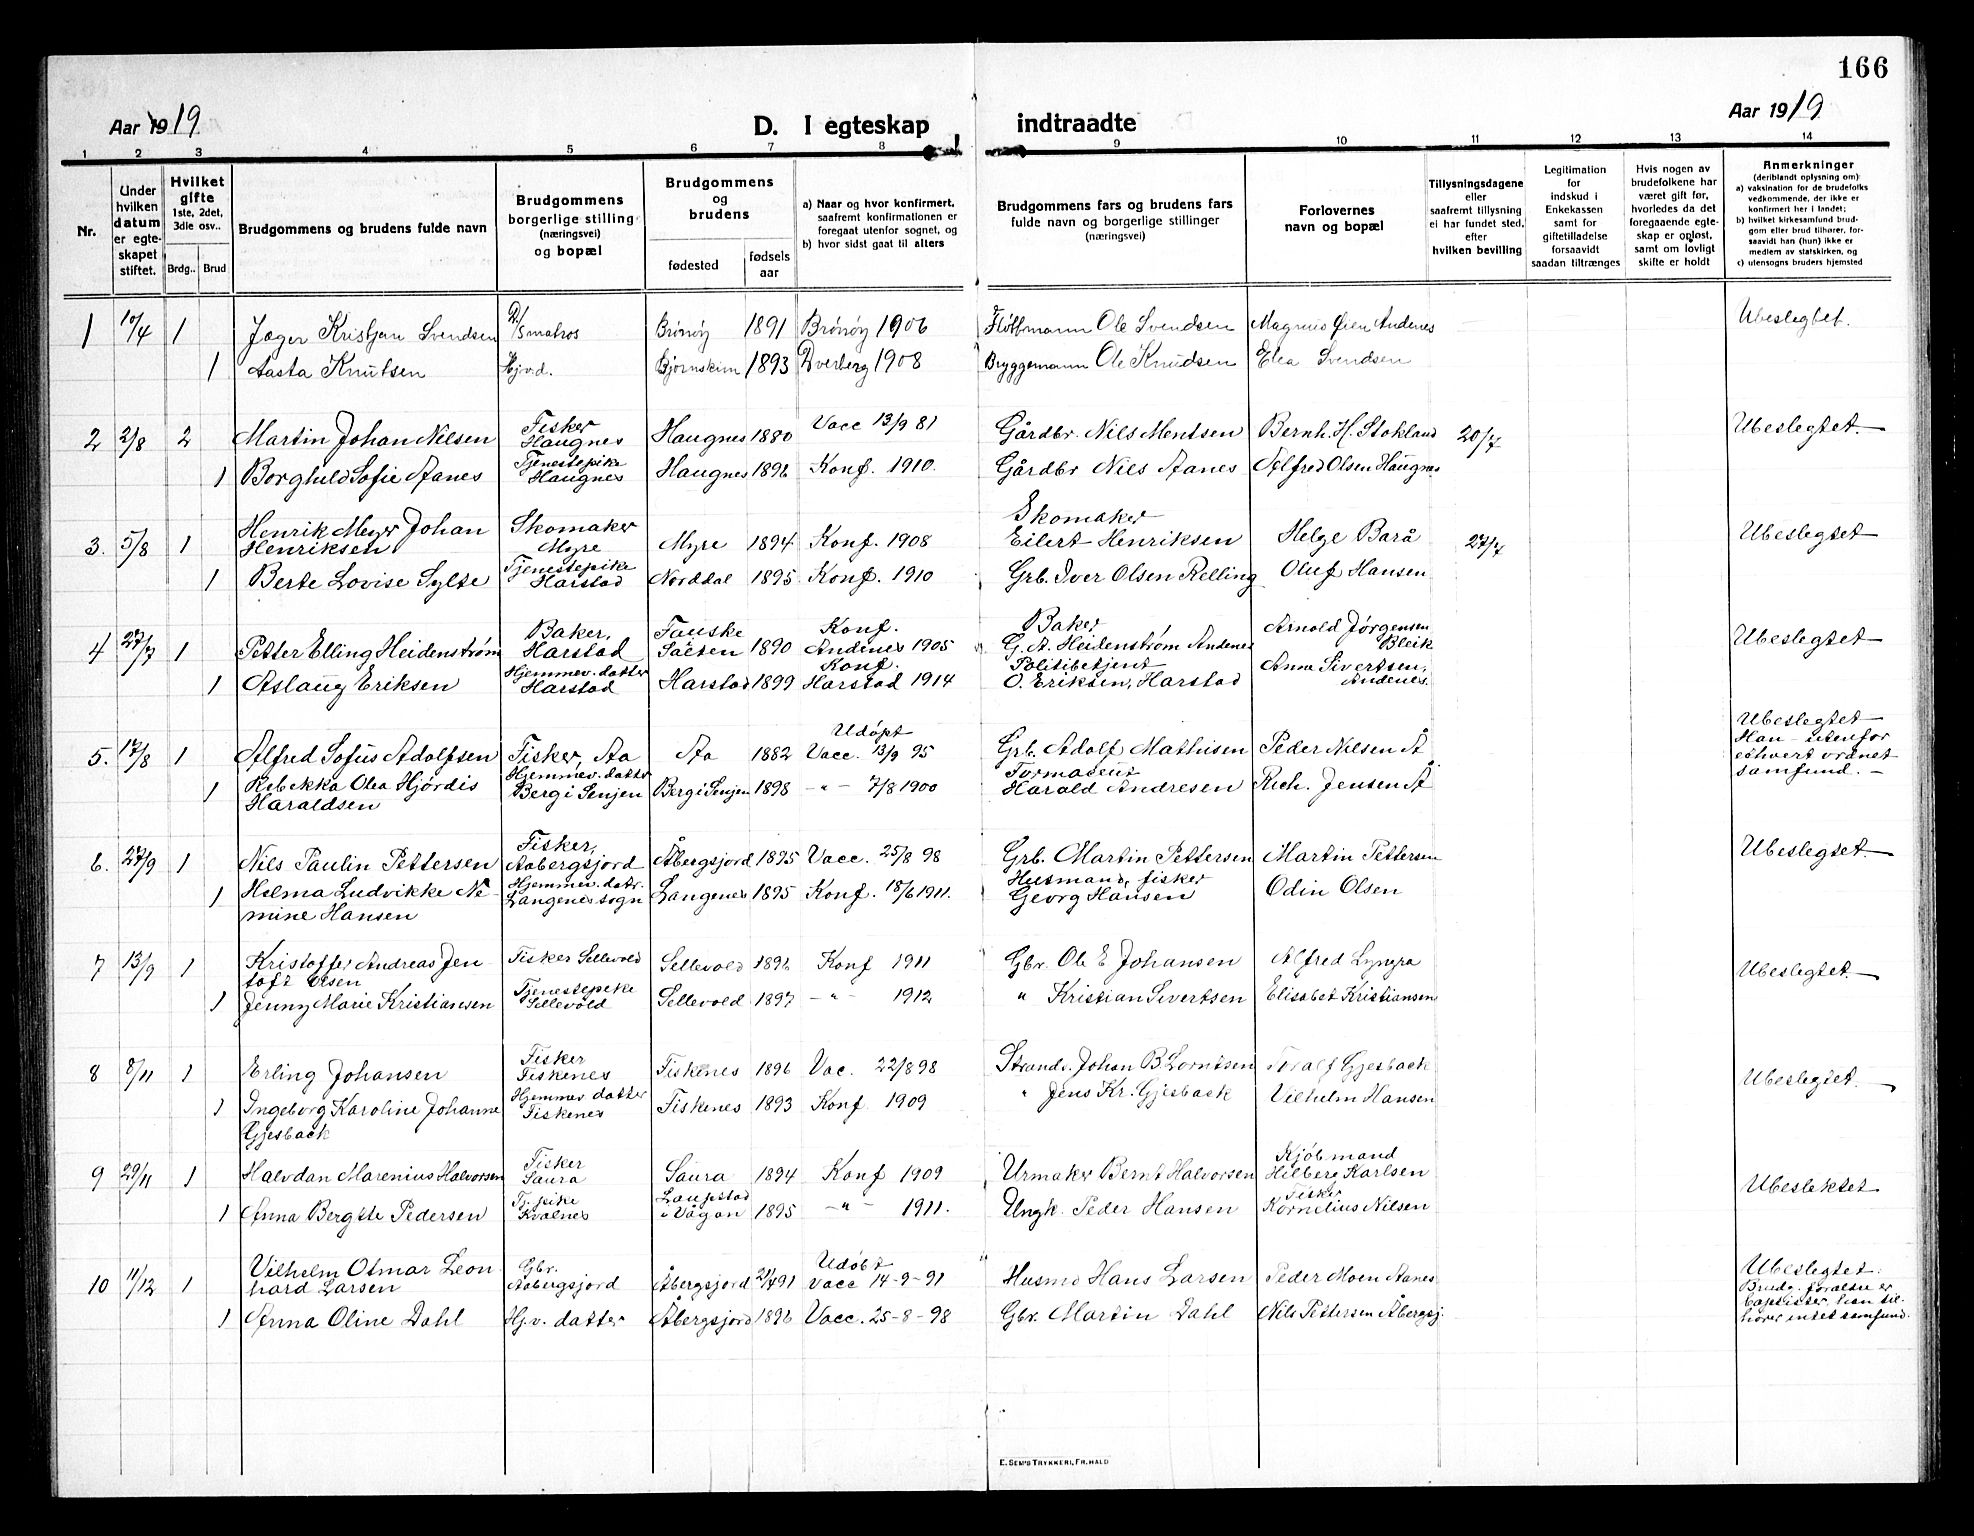 166
Aar 1919
D. I egteskap indtraadte
Aar 1919
1 2 3 4 5 6 7 8 9 10 11 12 13 14
Nr.
Under hvilken datum er egteskapet stiftet.
Hvilket gifte 1ste, 2det, 3die osv..
Brdg.. Brud
Brudgommens og brudens fulde navn
Brudgommens borgerlige stilling (næringsvei) og bopæl
Brudgommens og brudens
fødested
fødsels aar
a) Naar og hvor konfirmert, saafremt konfirmationen er foregaat utenfor sognet, og
b) hvor sidst gaat til alters
Brudgommens fars og brudens fars fulde navn og borgerlige stillinger (næringsvei)
Forlovernes navn og bopæl
Tillysningsdagene eller saafremt tillysning ei har fundet sted, efter hvilken bevilling
Legitimation for indskud i Enkekassen samt for giftetilladelse forsaavidt saadan tiltrænges
Hvis nogen av brudefolkene har været gift før, hvorledes da det foregaaende egteskap er opløst, samt om lovligt skifte er holdt
Anmerkninger (deriblandt oplysning om):
a) vaksination for de brudefolks vedkommende, der ikke er konfirmert her i landet;
b) hvilket kirkesamfund brudgom eller brud tilhører, forsaavidt han (hun) ikke er medlem av statskirken, og
c) utensogns bruders hjemsted
1 10/4 1 Jæger Kristjan Svendsen D/S matros Brönöy 1891 Brönöy 1906 Ole Svendsen Magnus Øien Andenes Ubeslegtet.
1 Aasta Knutsen Hjv.d. Bjørnskin 1893 Dverberg 1908 Bryggemann Ole Knudsen Elea Svendsen
2 2/8 2 Martin Johan Nilsen Fisker Haugnes Haugnes 1880 Vacc 13/9 81 Gårdbr. Nils Mentsen Bernh. H. Stokland 20/7 Ubeslegtet.
1 Borghild Sofie Aanes Tjenestepike Haugnes Haugnes 1896 Konf. 1910. Gårdbr Nils Aanes Alfred Olsen Haugnes
3. 5/8 1 Henrik Meyer Johan Henriksen Skomaker Myre Myre 1894 Konf. 1908 Skomaker Eilert Henriksen Helge Barå 27/7 Ubeslegtet
1 Berte Lovise Sylte Tjenestepike Harstad Norddal 1895 Konf. 1910 Grb. Iver Olsen Relling Oluf Hansen
4 27/7 1 Petter Elling Heidenstrøm Baker, Harstad Fauske Salten 1890 Konf. Andenes 1905 Baker G. A. Heidenstrøm Andenes Arnold Jørgensen Bleik Ubeslegtet
1 Aslaug Eriksen Hjemmev. datter Harstad Harstad 1899 Konf. Harstad 1914 Politibetjent O. Eriksen, Harstad Anna Sivertsen, Andenes.
5. 17/8 1 Alfred Sofus Adolfsen Fisker, Aa Aa 1882 Udöpt Vacc. 13/9 95 Grb. Adolf Mathisen Peder Nilsen Å Ubeslegtet Han utenfor ethvert ordnet samfund. –
1 Rebekka Olea Hjördis Haraldsen Hjemmev. datter Berg i Senjen Berg i Senjen 1898 – " – 7/8 1900 Harald Andresen Rich. Jensen Å
6. 27/9 1 Nils Paulin Pettersen Fisker, Aabergsjord Åbergsjord 1895 Vacc. 25/8 98 Grb. Martin Pettersen Martin Pettersen Ubeslegtet.
1 Helma Ludvikke Nemine Hansen Hjemmev. datr. Langenes sogn Langenes 1895 Konf. 18/6 1911. Husmand, fisker Georg Hansen Odin Olsen
7 13/9 1 Kristoffer Andreas Jentoft Olsen Fisker Sellevold Sellevold 1896 Konf 1911 Gbr. Ole E Johansen Alfred Lyngra Ubeslegtet.
1 Jenny Marie Kristiansen Tjenestepike Sellevold Sellevold 1897 – " – 1912 " Kristian Sivertsen Elisabet Kristiansen
8 8/11 1 Erling Johansen Fisker Fiskenes Fiskenes 1896 Vac. 22/8 98 Strands. Johan B. Lorntsen Toralf Gjesback Ubeslegtet.
1 Ingeborg Karoline Johanne Gjesback Hjemmev datter Fiskenes Fiskenes 1893 Konf 1909 " Jens Kr. Gjesback Vilhelm Hansen
9 29/11 1 Halvdan Marenius Halvorsen Fisker Saura Saura 1894 Konf 1909 Urmaker Bernt Halvorsen Kjöbmand Hilberg Karlsen Ubeslektet
1 Anna Bergitte Pedersen Tj. pike Kvalnes Laupstad i Vågan 1895 – " – 1911. Ungk. Peder Hansen Fisker Kornelius Nilsen
10 11/12 1 Vilhelm Otmar Leonhard Larsen Gbr. Aabergsjord Åbergsjord 21/4 91 Udöbt Vacc 14-9-91 Husmd Hans Larsen Peder Moen Aanes Ubeslegtet. Brudg. forældre er baptister, han tilhører intet samfund.
1 Anna Oline Dahl Hj.v. datter Åbergsjord 1896 Vacc. 25-8-98 Gbr. Martin Dahl Nils Pettersen Åbergsj.
E. SEM'S TRYKKERI, FR.HALD